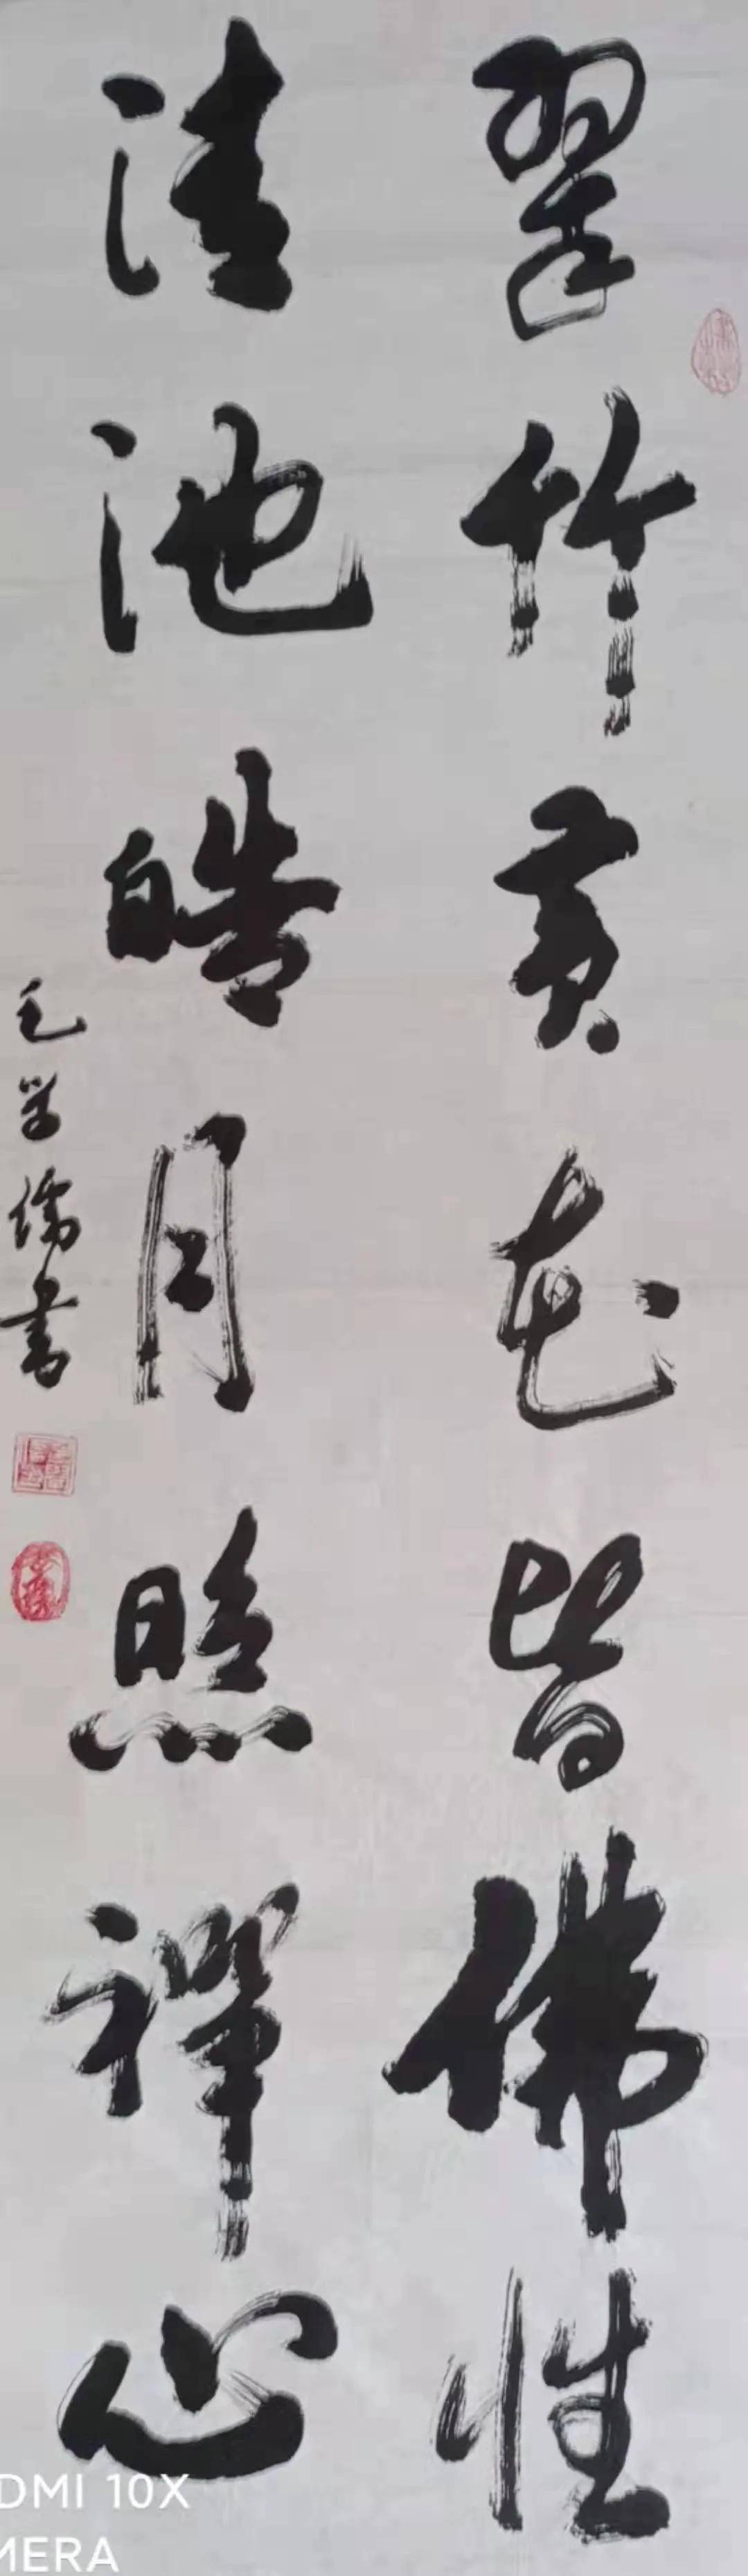 翠竹黄花皆佛性
清池皓月照禅心
毛学儒书
DMI 10X
MERA